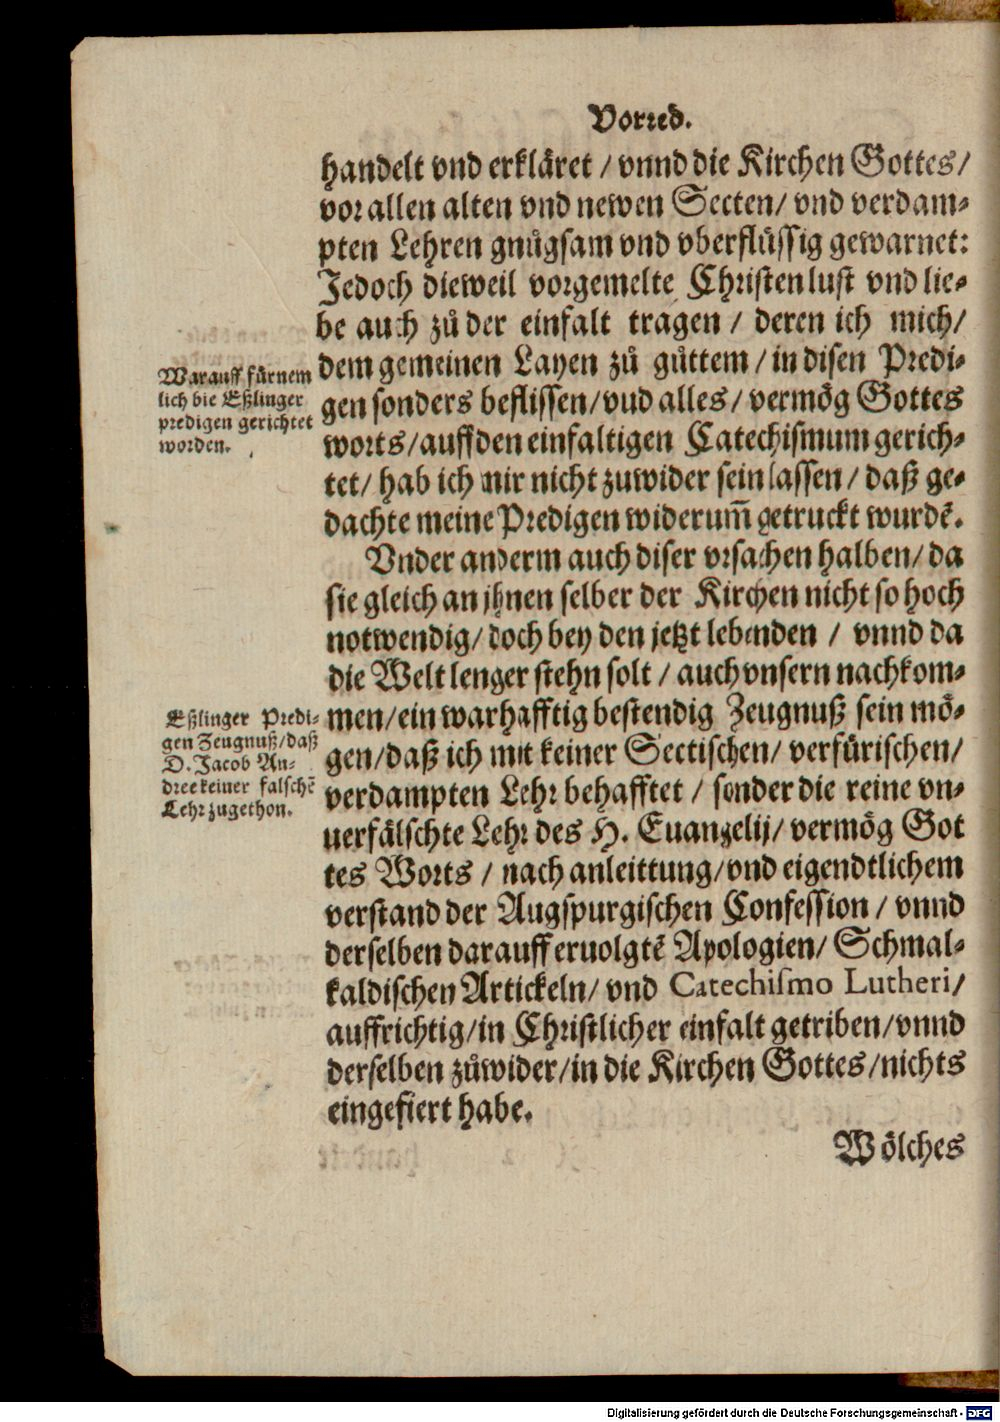 Vorred.
handelt vnd erkläret / vnnd die Kirchen Gottes /
vor allen alten vnd newen Secten / vnd verdam⸗
pten Lehren gnůgsam vnd vberflüssig gewarnet:
Jedoch dieweil vorgemelte Christen lust vnd lie⸗
be auch zů der einfalt tragen / deren ich mich /
Warauff fürnem
lich die Eßlinger
predigen gerichtet
worden.
dem gemeinen Layen zů gůttem / in disen Predi⸗
gen sonders beflissen / vud alles / vermög Gottes
worts / auff den einfaltigen Catechismum gerich⸗
tet / hab ich mir nicht zuwider sein lassen / daß ge⸗
dachte meine Predigen widerum̃ getruckt wurdē.
Vnder anderm auch diser vrsachen halben / da
sie gleich an jhnen selber der Kirchen nicht so hoch
notwendig / doch bey den jetzt lebenden / vnnd da
die Welt lenger stehn solt / auch vnsern nachkom⸗
Eßlinger Predi⸗
gen Zeugnuß / daß
D. Jacob An⸗
dree keiner falschē
Lehr zugethon.
men / ein warhafftig bestendig Zeugnuß sein mö⸗
gen / daß ich mit keiner Sectischen / verfürischen /
verdampten Lehr behafftet / sonder die reine vn⸗
uerfälschte Lehr des H. Euangelij / vermög Got
tes Worts / nach anleittung / vnd eigendtlichem
verstand der Augspurgischen Confession / vnnd
derselben darauff eruolgtē Apologien / Schmal⸗
kaldischen Artickeln / vnd Catechiſmo Lutheri /
auffrichtig / in Christlicher einfalt getriben / vnnd
derselben zůwider / in die Kirchen Gottes / nichts
eingefiert habe.
Wölches
Digitalisierung gefördert durch die Deutsche Forschungsgemeinschaft - DFG